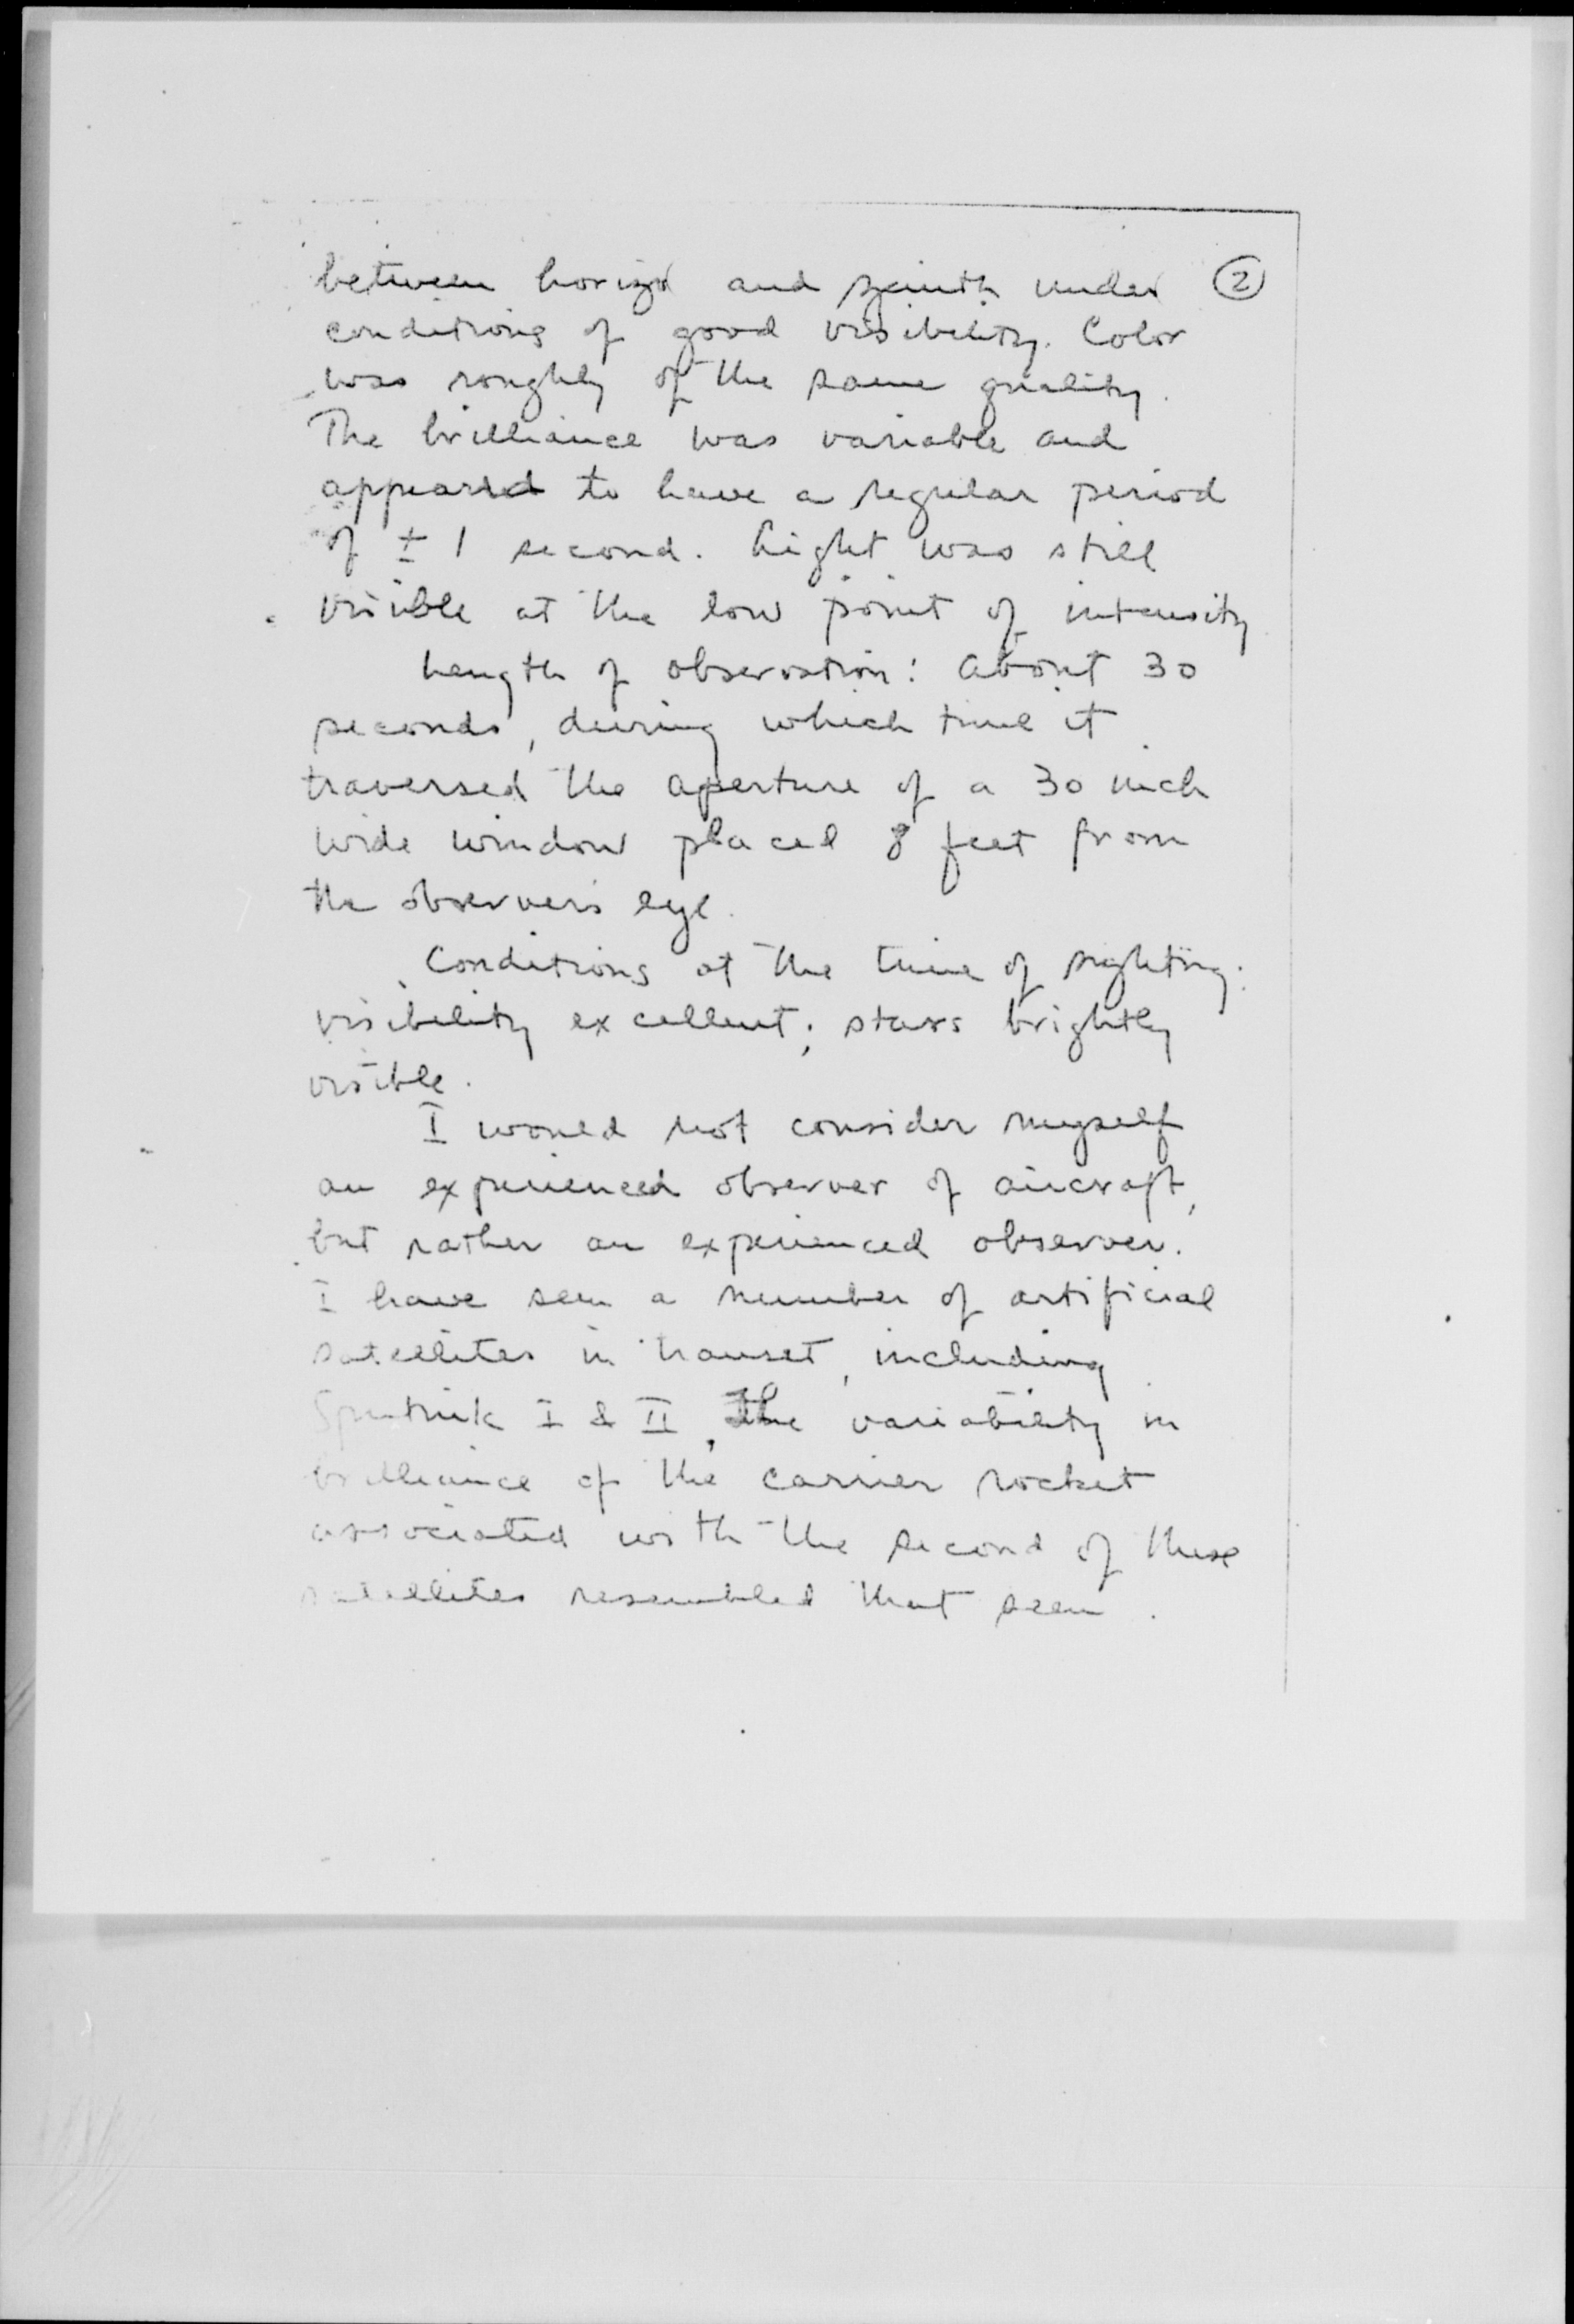 between horizon and zenith under ②
conditions of good visibility. Color
was roughly of the same quality.
The brilliance was variable and
appeared to have a regular period
of ± 1 second. Light was still
visible at the low point of intensity
Length of observation: About 30
seconds, during which time it
traversed the aperture of a 30 inch
wide window placed 8 feet from
the observer's eye.
Conditions at the time of sighting:
visibility excellent; stars brightly
visible.
I would not consider myself
an experienced observer of aircraft,
but rather an experienced observer.
I have seen a number of artificial
satellites in transet, including
Sputnik I & II. The variability in
brilliance of the carrier rocket
associated with the second of these
satellites resembled that seen.